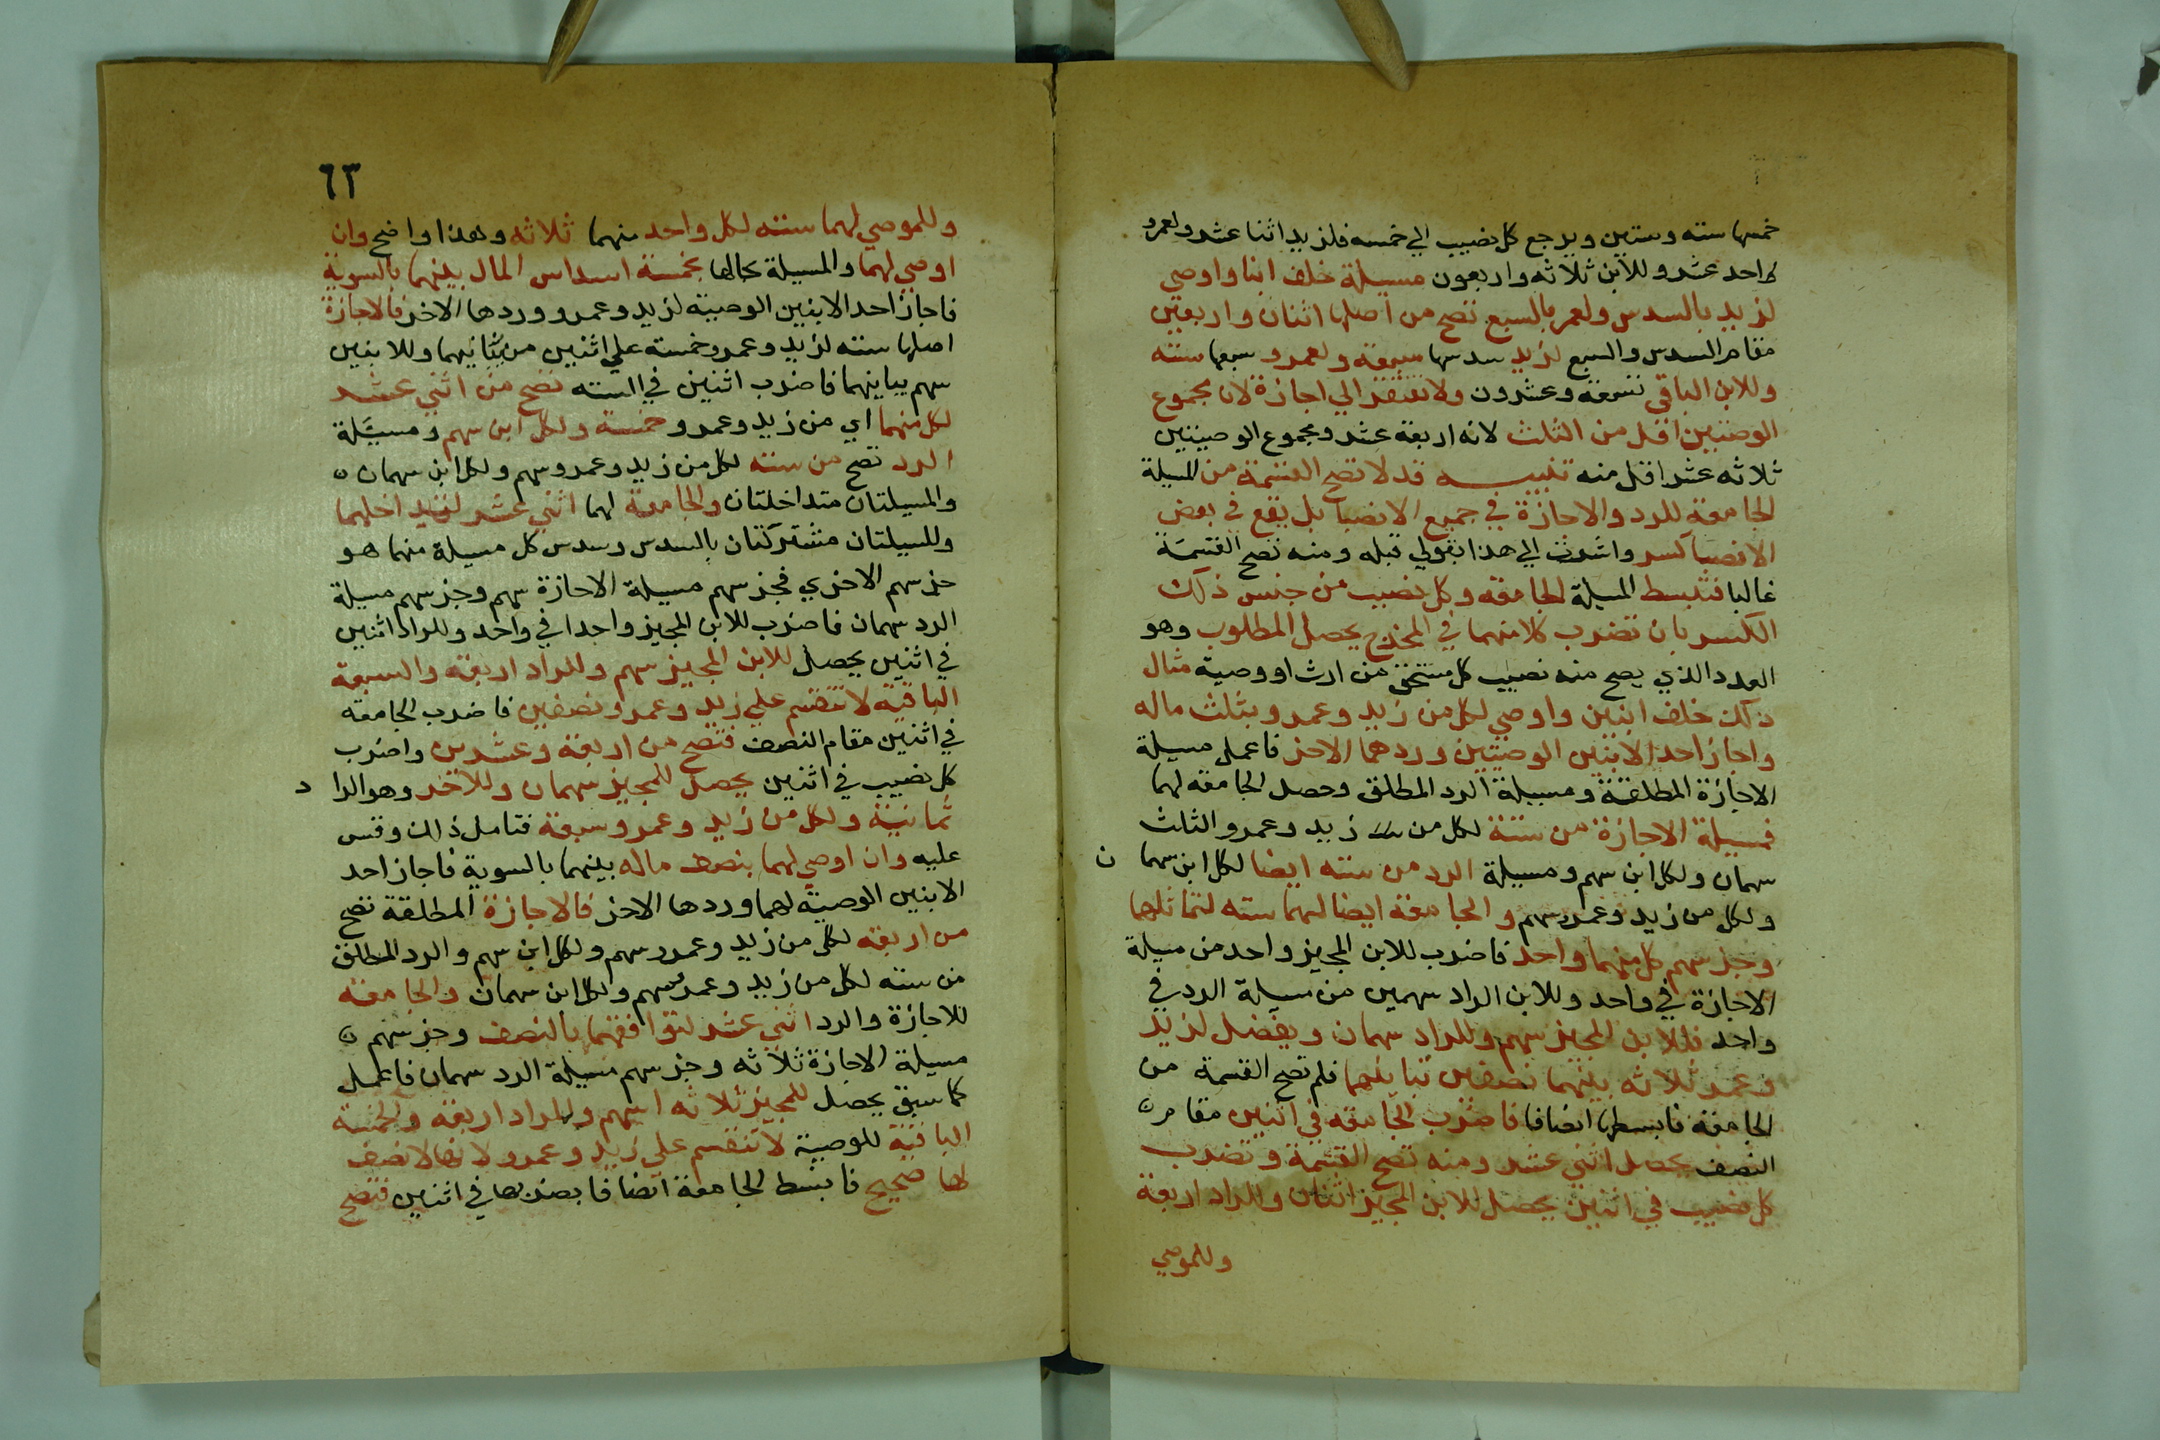 خمسها سته وستين ويرجع كل نصيب الي خمسه فلزيد اثنا عشر ولعمرو
احد عشر وللابن ثلاثه واربعون مسيلة خلف ابنا واوصي
لزيد بالسدس ولعمر بالسبع تصح من اصلها اثنان واربعين
مقام السدس والسبع لزيد سدسها سبعه ولعمرو سبعها سته
وللابن الباقي تسعة وعشرون ولا تفتقر الي اجازة لان مجموع
الوصيتين اقل من الثلث لانه اربعة عشر ومجموع الوصيتين
ثلاثه عشر اقل منه تنبيه قد لا تصح القسمة من المسيلة
الجامعة للرد والاجازة في جميع الانصبا بل يقع في بعض
الانصبا كسر واشرت الي هذا بقولي قبله ومنه تصح القسمة
غالبا فتبسط المسيلة الجامعه وكل نصيب من جنس ذلك
الكسر بان تضرب كلا منهما في المخرج يحصل المطلوب وهو
العدد الذي يصح منه نصيب كل مستحق من ارث او وصية مثال
ذلك خلف ابنين واوصي لكل من زيد وعمرو بثلث ماله
واجاز احد الابنين الوصيتين وردهما الاخر فاعمل مسيلة
الاجازة المطلقة ومسيلة الرد المطلق وحصل الجامعه لهما
فمسيلة الاجازة من ستة لكل من زيد وعمرو الثلث
سهمان ولكل ابن سهم ومسيلة الرد من سته ايضا لكل ابن سهما ن
ولكل من زيد وعمرو سهم والجامعة ايضا لهما سته لتماثلهما
وجز سهم كل منهما واحد فاضرب للابن المجيز واحد من مسيلة
الاجازة في واحد وللابن الراد سهمين من مسيلة الرد في
واحد فللابن المجيز سهم وللراد سهمان ويفضل لزيد
وعمرو ثلاثه بينهما نصفين تباينهما فلم تصح القسمة من
الجامعة فابسطها انصافا فاضرب الجامعه في اثنين مقام
النصف يحصل اثني عشر ومنه تصح القسمة وتضرب
كل نصيب في اثنين يحصل للابن المجيز اثنان والراد اربعة
وللموصي
٦٣
وللموصي لهما سته لكل واحد منهما ثلاثه وهذا واضح وان
اوصي لهما والمسيلة بحالها بخمسة اسداس المال بينهما بالسوية
فاجاز احد الابنين الوصية لزيد وعمرو وردها الاخر فالاجازة
اصلها سته لزيد وعمرو خمسه علي اثنين من تباينهما وللابنين
سهم يباينهما فاضرب اثنين في السته تصح من اثني عشر
لكل منهما اي من زيد وعمرو خمسة ولكل ابن سهم ومسيلة
الرد تصح من سته لكل من زيد وعمرو سهم ولكل ابن سهمان
والمسيلتان متداخلتان والجامعة لهما اثني عشر لتداخلهما
وللمسيلتان مشتركتان بالسدس وسدس كل مسيلة منهما هو
جز سهم الاخري فجز سهم مسيلة الاجازة سهم وجز سهم مسيلة
الرد سهمان فاضرب للابن المجيز واحدا في واحد وللراد اثنين
في اثنين يحصل للابن المجيز سهم وللراد اربعة والسبعة
الباقية لا تنقسم علي زيد وعمرو نصفين فاضرب الجامعه
في اثنين مقام النصف فتصح من اربعة وعشرين واضرب
كل نصيب في اثنين يحصل للمجيز سهمان وللاخر وهو الرا د
ثمانية ولكل من زيد وعمرو سبعة فتامل ذلك وقس
عليه وان اوصي لهما بنصف ماله بينهما بالسوية فاجاز احد
الابنين الوصية لهما وردها الاخر فالاجازة المطلقة تصح
من اربعه لكل من زيد وعمرو سهم ولكل ابن سهم والرد المطلق
من سته لكل من زيد وعمرو سهم ولكل ابن سهمان والجامعة
للاجازة والرد اثني عشر لتوافقهما بالنصف وجز سهم
مسيلة الاجازة ثلاثه وجز سهم مسيلة الرد سهمان فاعمل
كما سبق يحصل للمجيز ثلاثه اسهم وللراد اربعة والخمسة
الباقية للوصية لا تنقسم علي زيد وعمرو لانها لا نصف
لها صحيح فابسط الجامعة انصافا بضربها في اثنين فتصح